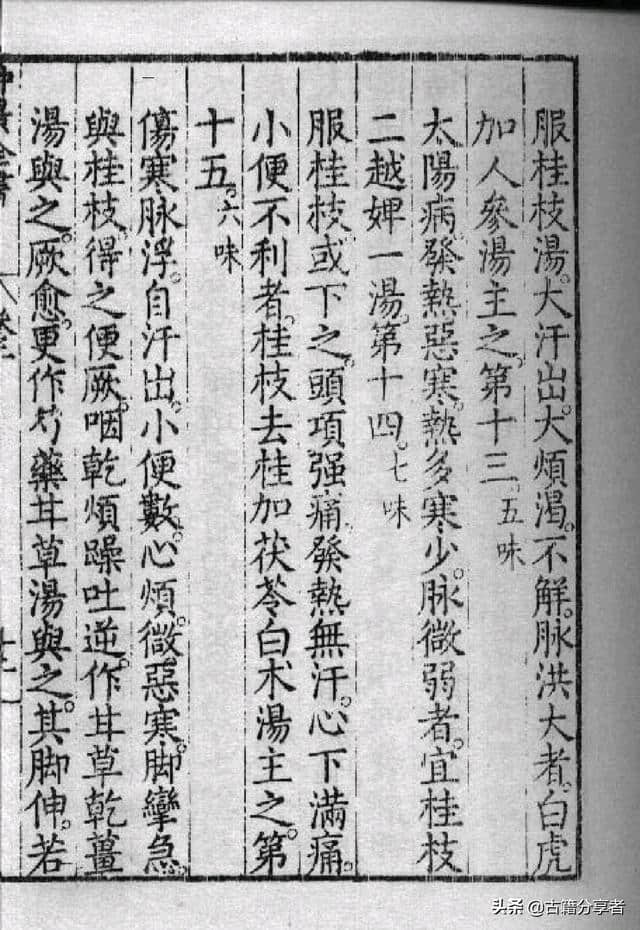 服桂枝湯。大汗出。大煩渴。不解。脉洪大者。白虎
加人參湯主之。第十三。五味
太陽病。發熱惡寒。熱多寒少。脉微弱者。宜桂枝
二越婢一湯。第十四。七味
服桂枝。或下之。頭項强痛。發熱無汗。心下滿痛。
小便不利者。桂枝去桂加茯苓白术湯主之。第
十五。六味
傷寒脉浮。自汗出。小便數。心煩。微惡寒。脚攣急。
與桂枝。得之便厥。咽乾煩躁吐逆。作甘草乾薑
湯與之。厥愈。更作芍藥甘草湯與之。其脚伸。若
頭条 @古籍分享者